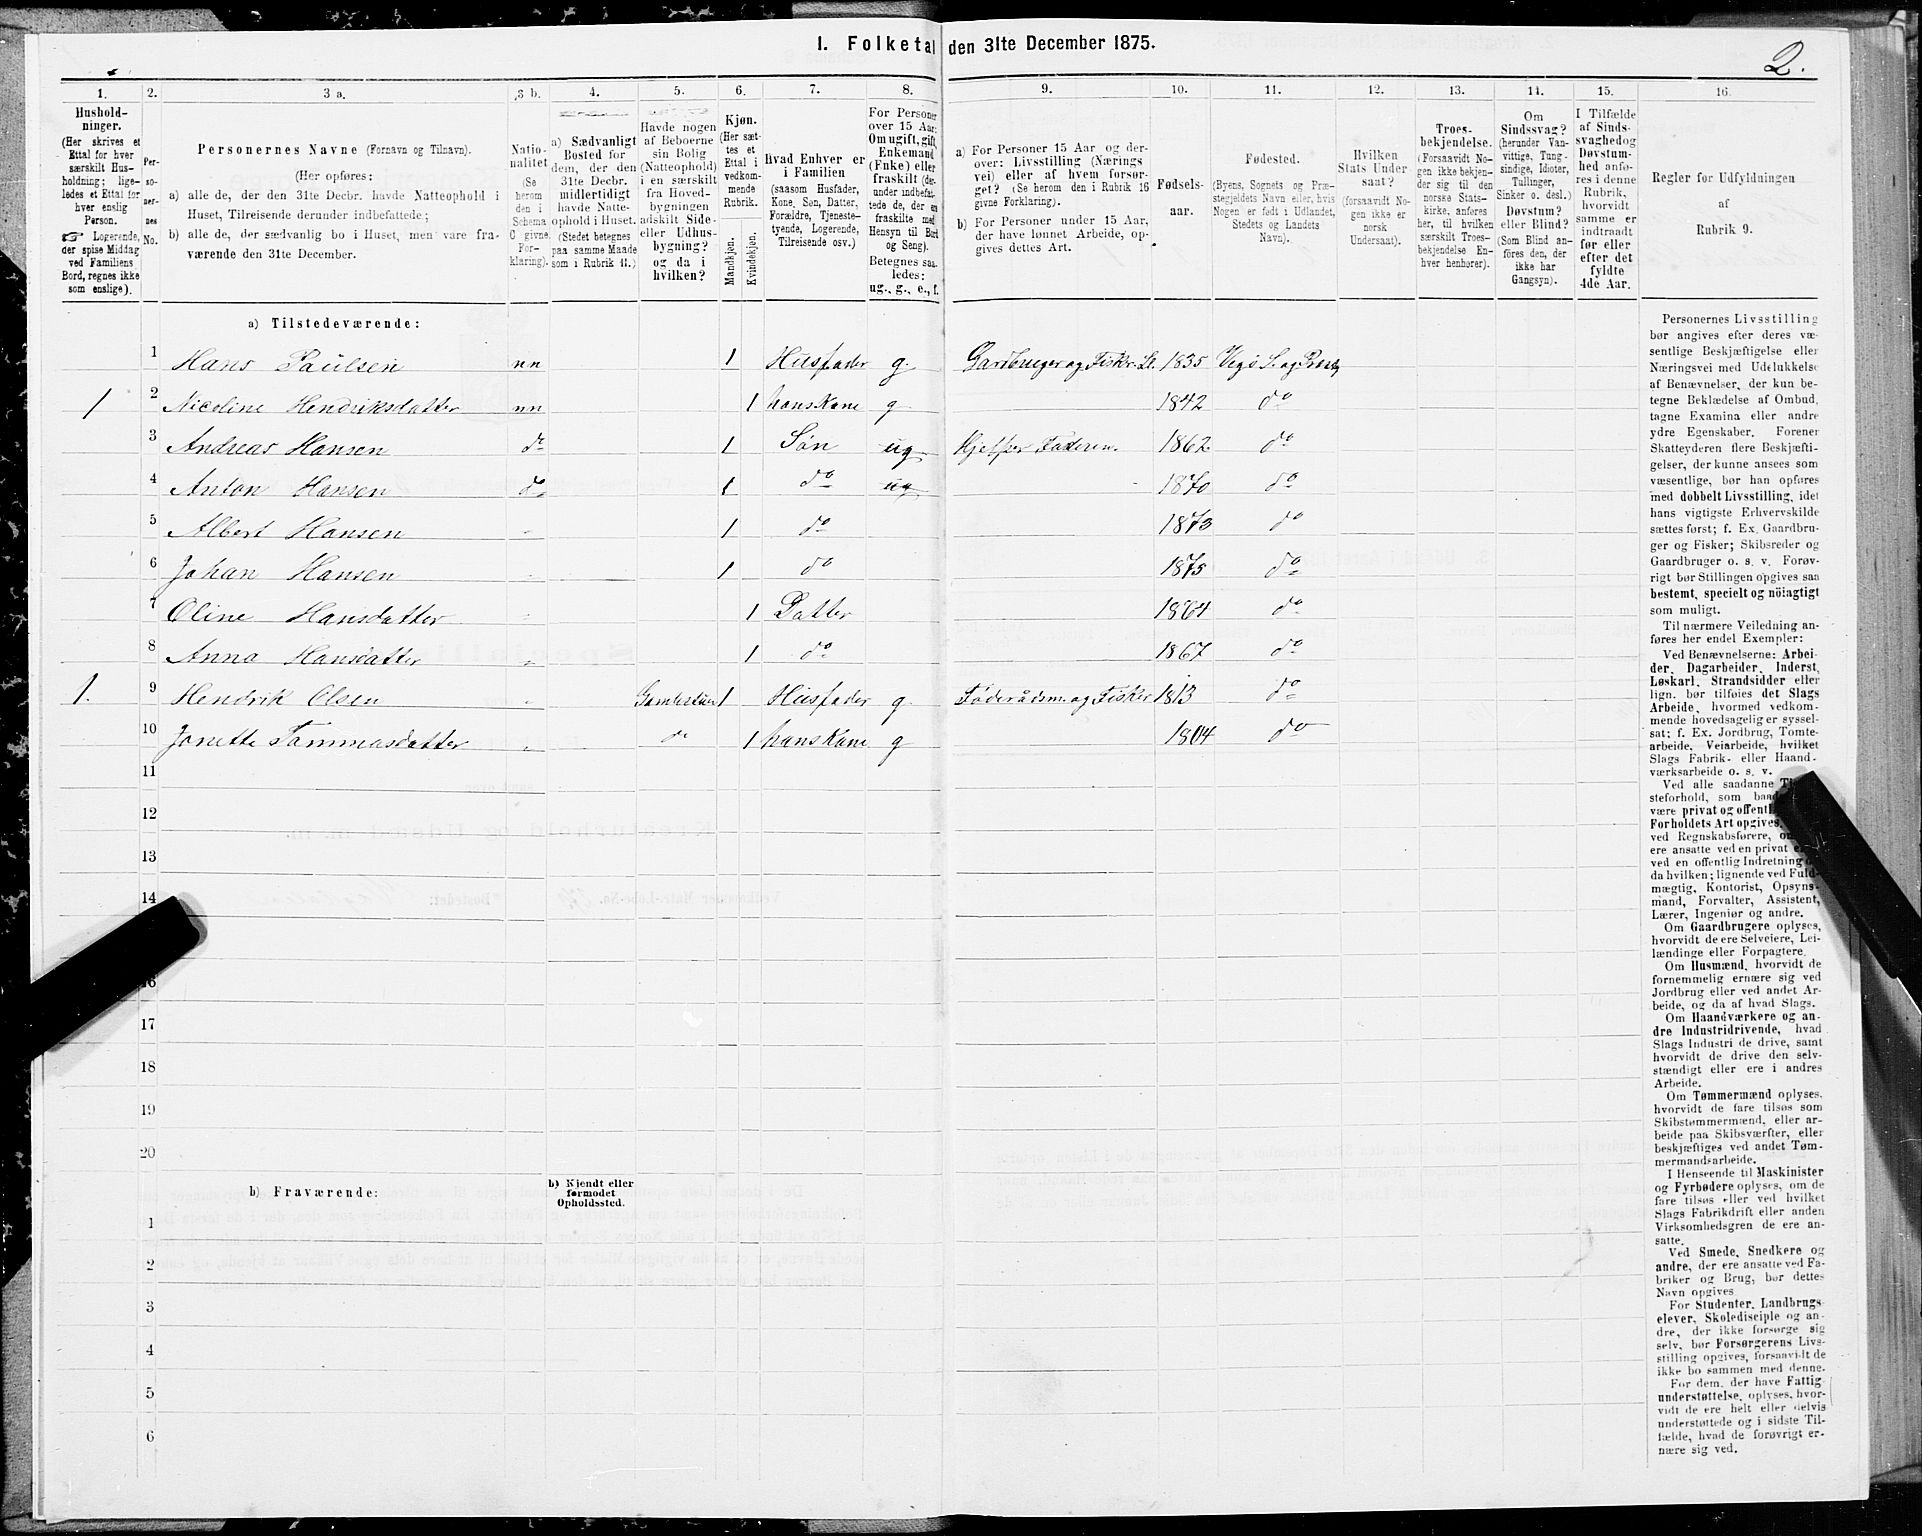 1. Folketal den 31te December 1875.
2.
1. 2. 3 a. 3 b. 4. 5. 6. 7. 8. 9. 10. 11. 12. 13. 14. 15. 16.
Husholdninger.
(Her skrives et
Ettal for hver
særskilt Husholdning; ligeledes
et Ettal for
hver enslig
Person.
☞ Logerende,
der spise Middag
ved Familiens
Bord, regnes ikke
som enslige).
Personernes
No.
Personernes Navne (Fornavn og Tilnavn).
(Her opføres:
a) alle de, der den 31te Decbr. havde Natteophold i
Huset, Tilreisende derunder indbefattede;
b) alle de, der sædvanlig bo i Huset, men vare fraværende
den 31te December.
Nationalitet
(Se
herom
den i
Schema
C givne
Forklaring).
a) Sædvanligt
Bosted for
dem, der den
31te Decbr.
midlertidigt
havde Natteophold
i Huset.
(Stedet betegnes
paa samme Maade
som i Rubrik 11.)
Havde nogen
af Beboerne
sin Bolig
(Natteophold)
i en særskilt
fra Hovedbygningen
adskilt Side-
eller Udhusbygning?
og da i
hvilken?
Kjøn.
(Her sættes
et
Ettal i
vedkommende
Rubrik.
Mandkjøn.
Kvindekjøn.
Hvad Enhver er
i Familien
(saasom Husfader,
Kone, Søn, Datter,
Forældre, Tjenestetyende,
Logerende,
Tilreisende osv.)
For Personer
over 15 Aar:
Om ugift, gift,
Enkemand
(Enke) eller
fraskilt (derunder
indbefattede
de, der ere
fraskilte med
Hensyn til Bord
og Seng).
Betegnes saaledes:
ug., g., e., f.
a) For Personer 15 Aar og derover:
Livsstilling (Næringsvei)
eller af hvem forsørget?
(Se herom den i Rubrik 16
givne Forklaring).
b) For Personer under 15 Aar,
der have lønnet Arbeide, opgives
dettes Art.
Fødselsaar.
Fødested.
(Byens, Sognets og Præstegjeldets
Navn eller, hvis
Nogen er født i Udlandet,
Stedets og Landets
Navn).
Hvilken
Stats Undersaat?
(forsaavidt Nogen
ikke er
norsk
Undersaat).
Troesbekjendelse.
(Forsaavidt Nogen
ikke bekjender
sig til den
norske Statskirke,
anføres
her, til hvilken
særskilt Troesbekjendelse
Enhver
henhører).
Om
Sindssvag?
(herunder Vanvittige,
Tungsindige,
Idioter,
Tullinger,
Sinker o. desl.)
Døvstum?
eller Blind?
(Som Blind anføres
den, der
ikke har
Gangsyn).
I Tilfælde
af Sindssvaghed
og
Døvstumhed
anføres
i denne
Rubrik,
hvorvidt
samme er
indtraadt
før eller
efter det
fyldte
4de Aar.
Regler for Udfyldningen
af
Rubrik 9.
a) Tilstedeværende:
1 Hans Paulsen nn 1 Husfader g. Gardbruger og Fisker. 1835 Vegø S. og Præstg
1 2 Nicoline Hendriksdatter nn 1 hans Kone g 1842 do
3 Andreas Hansen do 1 Søn ug Hjelper Faderen. 1862 do
4 Anton Hansen do 1 do ug 1870 do
5 Albert Hansen 1 do 1873 do
6 Johan Hansen 1 do 1875 do
7 Oline Hansdatter 1 Datter 1864 do
8 Anna Hansdatter 1 do 1867 do
1. 9 Hendrik Olsen 1 Husfader g. Føderådsm. og Fisker 1813 do
10 Janette Tommasdatter do 1 hans Kone g 1804 do
11
12
13
14
16
17
18
19
20
b) Fraværende:
b) Kjendt eller
formodet
Opholdssted.
1
2
3
4
5
6
Personernes Livsstilling
bør angives efter deres væsentlige
Beskjæftigelse eller
Næringsvei med Udelukkelse
af Benævnelser, der kun betegne
Beklædelse af Ombud,
tagne Examina eller andre
ydre Egenskaber. Forener
Skatteyderen flere Beskjæftigelser,
der kunne ansees som
væsentlige, bør han opføres
med dobbelt Livsstilling, idet
hans vigtigste Erhvervskilde
sættes først; f. Ex. Gaardbruger
og Fisker; Skibsreder og
Gaardbruger o. s. v. Forøvrigt
bør Stillingen opgives saa
bestemt, specielt og nøiagtigt
som muligt.
Til nærmere Veiledning anføres
her endel Exempler:
Ved Benævnelserne: Arbeider,
Dagarbeider, Inderst,
Løskarl, Strandsidder eller
lign. bør tilføies det Slags
Arbeide, hvormed vedkommende
hovedsagelig er sysselsat;
f. Ex. Jordbrug, Tomtearbeide,
Veiarbeide, hvilket
Slags Fabrik- eller Haandværksarbeide
o. s. v.
Ved alle saadanne
Forholdets Art opgives,
ved Regnskabsførere,
ere ansatte ved en privat
ved en offentlig Indretning
da hvilken; lignende ved Fuldmægtig,
Kontorist, Opsynsmand,
Forvalter, Assistent,
Lærer, Ingeniør og andre.
Om Gaardbrugere oplyses,
hvorvidt de ere Selveiere, Leilændinge
eller Forpagtere.
Om Husmænd, hvorvidt de
fornemmelig ernære sig ved
Jordbrug eller ved andet Arbeide,
og da af hvad Slags.
Om Haandværkere og andre
Industridrivende, hvad
Slags Industri de drive, samt
hvorvidt de drive den selvstændigt
eller ere i andres
Arbeide.
Om Tømmermænd oplyses,
hvorvidt de fare tilsøs som
Skibstømmermænd, eller arbeide
paa Skibsværfter, eller
beskjæftiges ved andet Tømmermandsarbeide.
I Henseende til Maskinister
og Fyrbødere oplyses, om de
fare tilsøs eller ved hvilket
Slags Fabrikdrift eller anden
Virksomhedsgren de ere ansatte.
Ved Smede, Snedkere og
andre, der ere ansatte ved Fabriker
og Brug, bør dettes
Navn opgives
For Studenter, Landbrugselever,
Skoledisciple og andre,
der ikke forsørge sig
selv, bør Forsørgerens Livsstilling
opgives, forsaavidt de
ikke bo sammen med denne.
For dem, der have Fattigunderstøttelse,
oplyses, hvorvidt
de ere helt eller delvis
understøttede og i sidste Tilfælde,
hvad de forøvrigt ernære
sig ved.